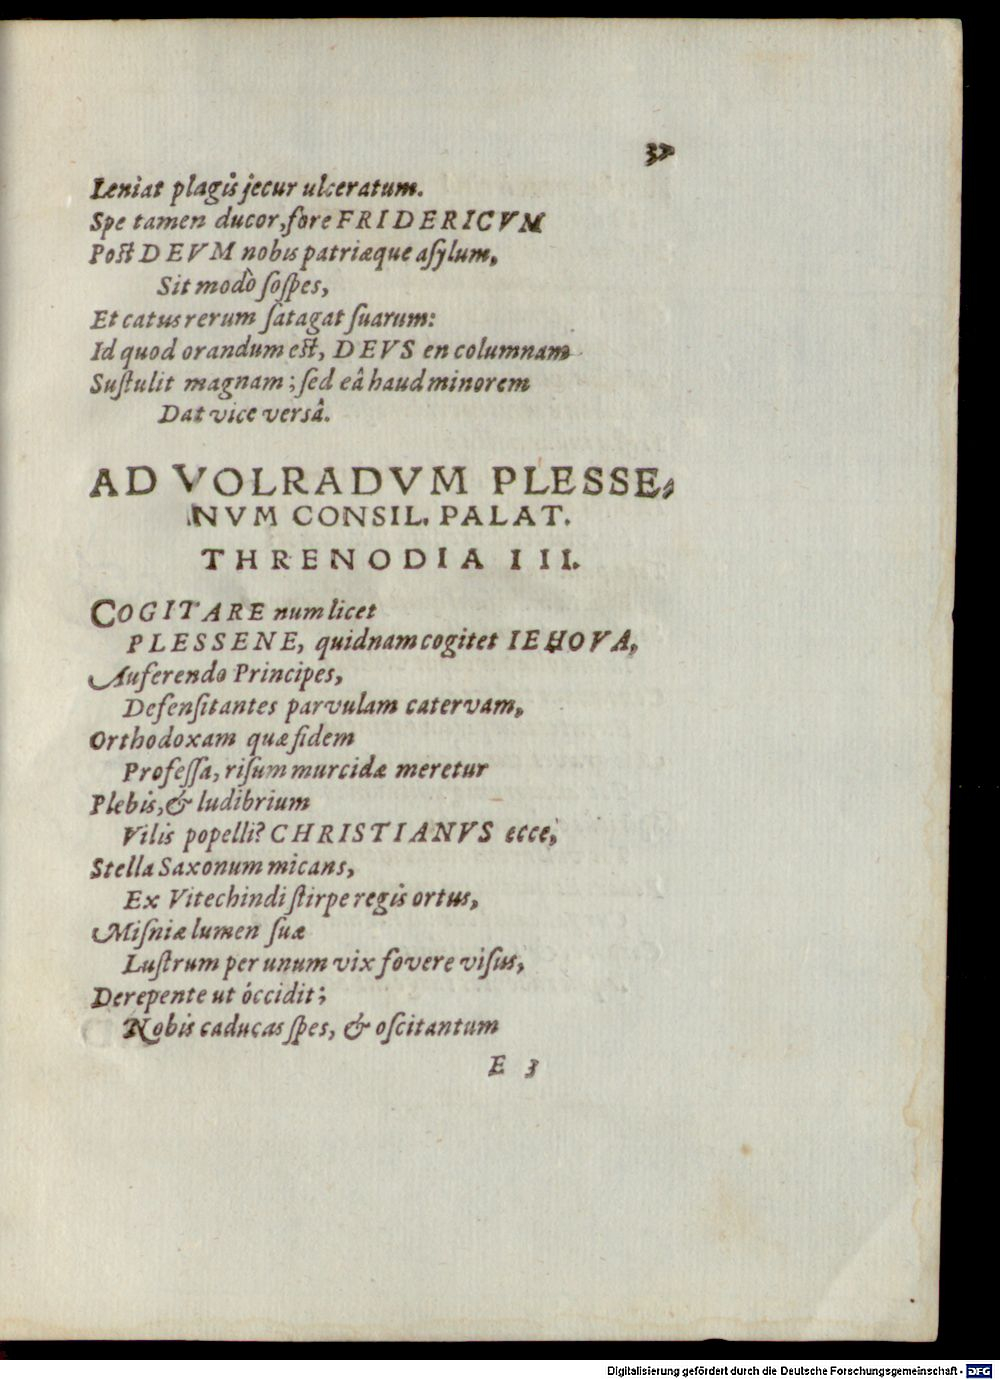 37
Leniat plagis jecur ulceratum.
Spe tamen ducor, fore FRIDERICVM
Poſt DEVM nobis patriæque aſylum,
Sit modò ſoſpes,
Et catus rerum ſatagat ſuarum:
Id quod orandum eſt, DEVS en columnam
Suſtulit magnam; ſed eâ haud minorem
Dat vice versâ.
AD VOLRADVM PLESSE-
NVM CONSIL. PALAT.
THRENODIA III.
COGITARE num licet
PLESSENE, quidnam cogitet IEHOVA,
Auferendo Principes,
Defenſitantes parvulam catervam,
Orthodoxam quæ fidem
Profeſſa, riſum murcidæ meretur
Plebis, & ludibrium
Vilis popelli? CHRISTIANVS ecce,
Stella Saxonum micans,
Ex Vitechindi ſtirpe regis ortus,
Miſniæ lumen ſuæ
Luſtrum per unum vix fovere viſus,
Derepente ut óccidit;
Nobis caducas ſpes, & oſcitantum
E 3
Digitalisierung gefördert durch die Deutsche Forschungsgemeinschaft - DFG